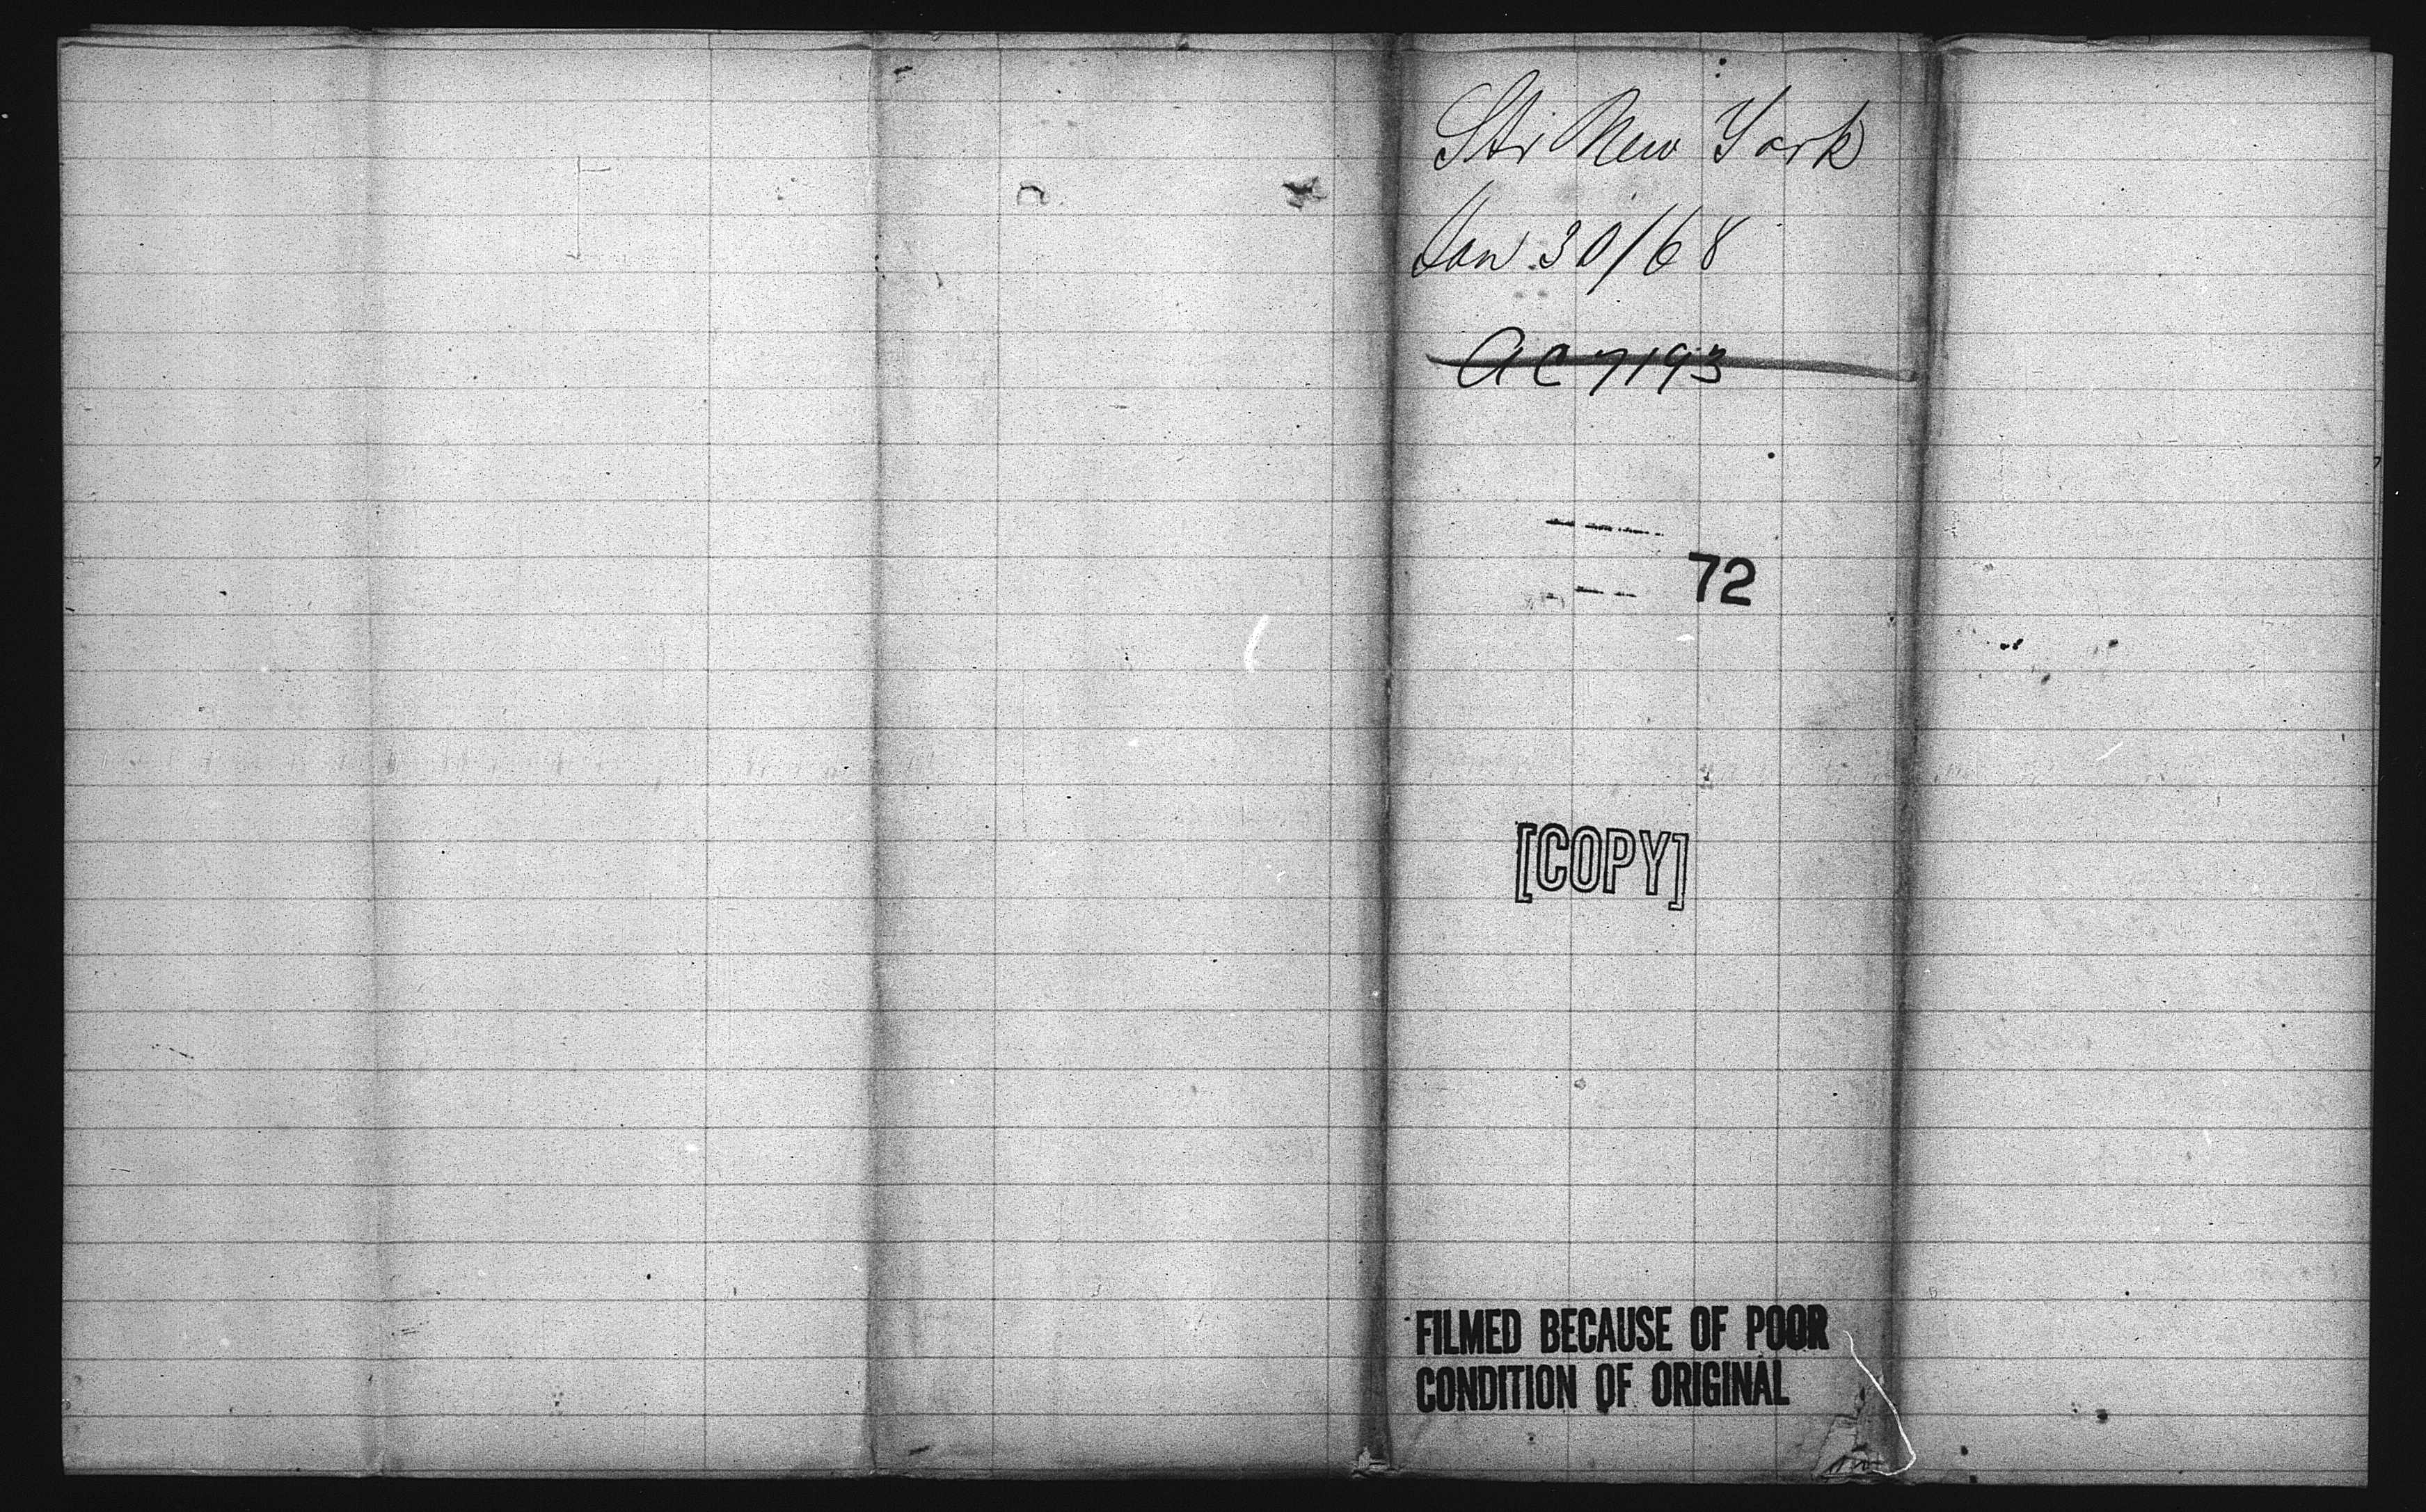 Str New York
Jan 30/68
AC 7193
72
[COPY]
FILMED BECAUSE OF POOR
CONDITION OF ORIGINAL